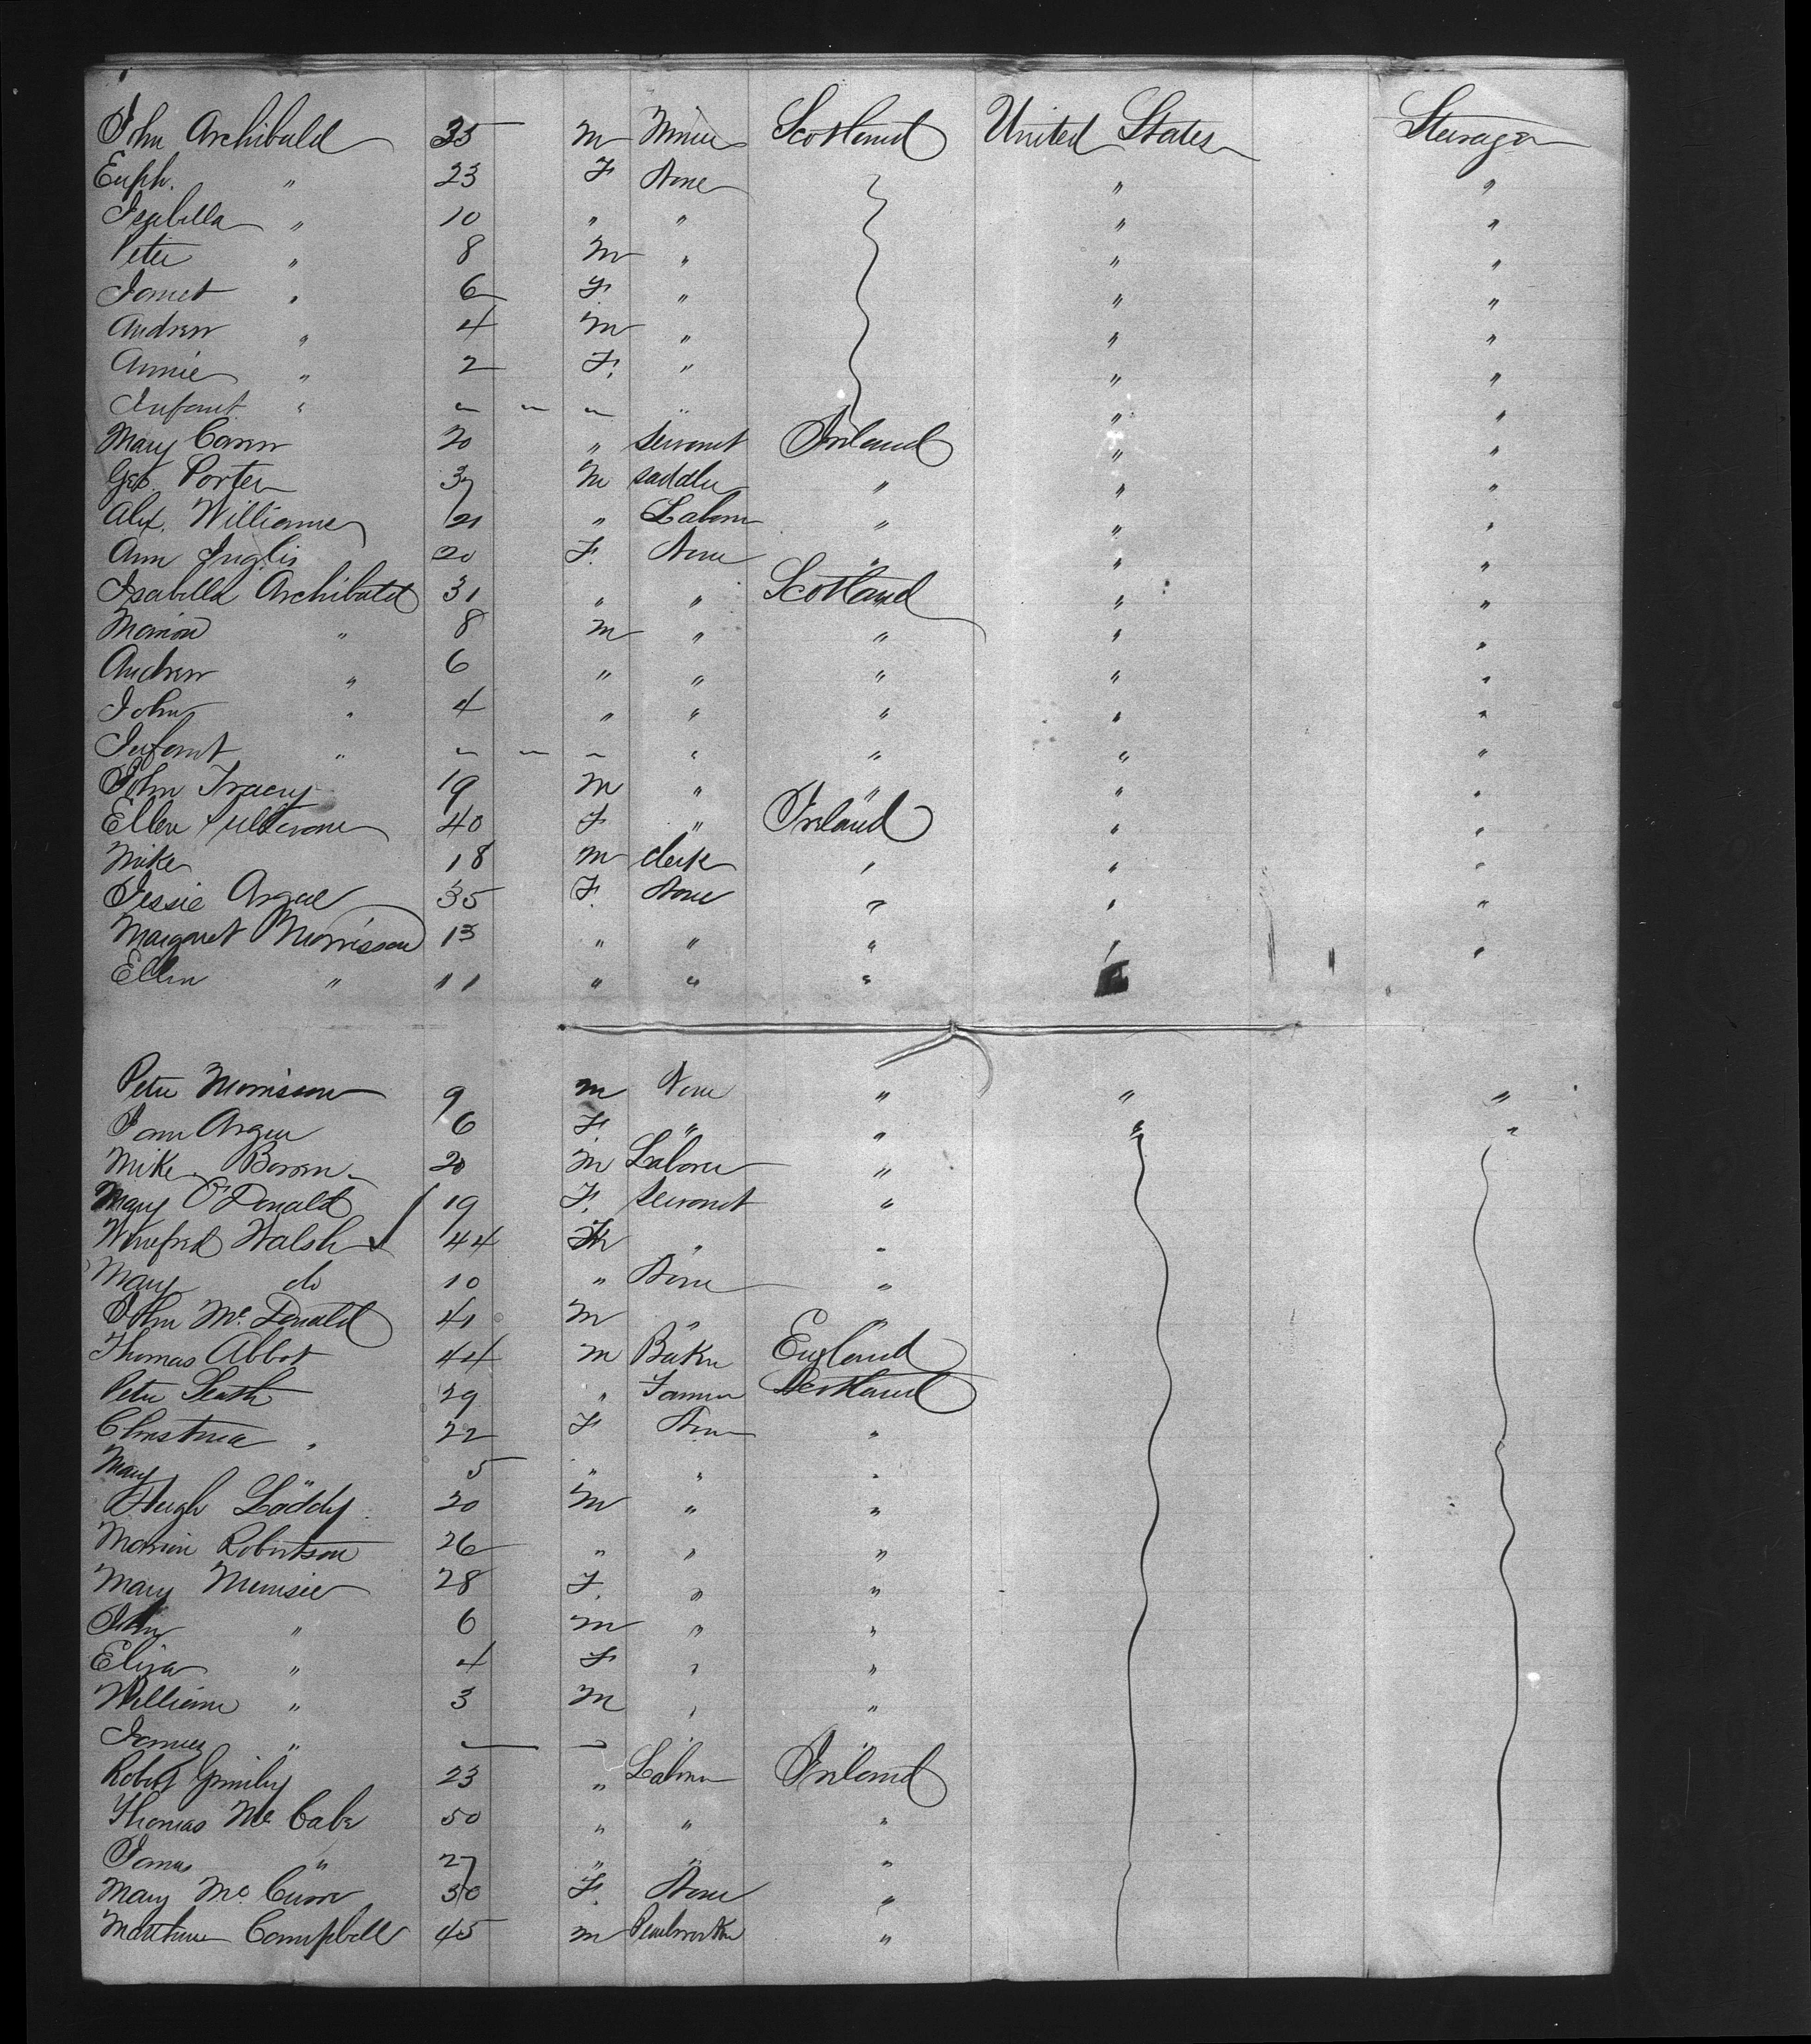 John Archibald 35 m Miner Scotland United States Steerage
Euph. " 23 F None " "
Isabella " 10 " " " "
Peter " 8 m " " "
Janet " 6 F. " " "
Andrew " 4 m " " "
Annie " 2 F. " " "
Infant " - - - " " "
Mary 20 " servant Ireland " "
Geo. Porter 37 m saddler " " "
Alex. Williams 21 " Laborer " " "
Ann Inglis 20 F. None " " "
Isabella Archibald 31 " " Scotland " "
Marion " 8 m " " " "
Andrew " 6 " " " " "
John " 4 " " " " "
Infant " - - - " " " "
John Tracey 19 m " " " "
Ellen 40 F " Ireland " "
Mike 18 m clerk " " "
Jessie 35 F. None " " "
Margaret Morrison 13 " " " " "
Ellen " 11 " " "
Peter Morrison 9 m None " " "
Jane 6 F. " " " "
Mike 20 m Laborer "
Mary O'Donald 19 F. servant "
Winefred Walsh 44 F " "
Mary do 10 " None "
John Mc Donald 41 m " "
Thomas Abbot 44 m Baker England
Peter 29 " Farmer Scotland
Christina " 22 F None "
Mary " 5 " " "
Hugh Laddy 20 m " "
Marion Robertson 26 " " "
Mary 28 F. " "
John " 6 m " "
Eliza " 4 F " "
William " 3 m " "
James " - - " "
Robert 23 " Laborer Ireland
Thomas Mc Cabe 50 " " "
James " 27 " " "
Mary Mc 30 F. None "
Matthew Campbell 45 m "